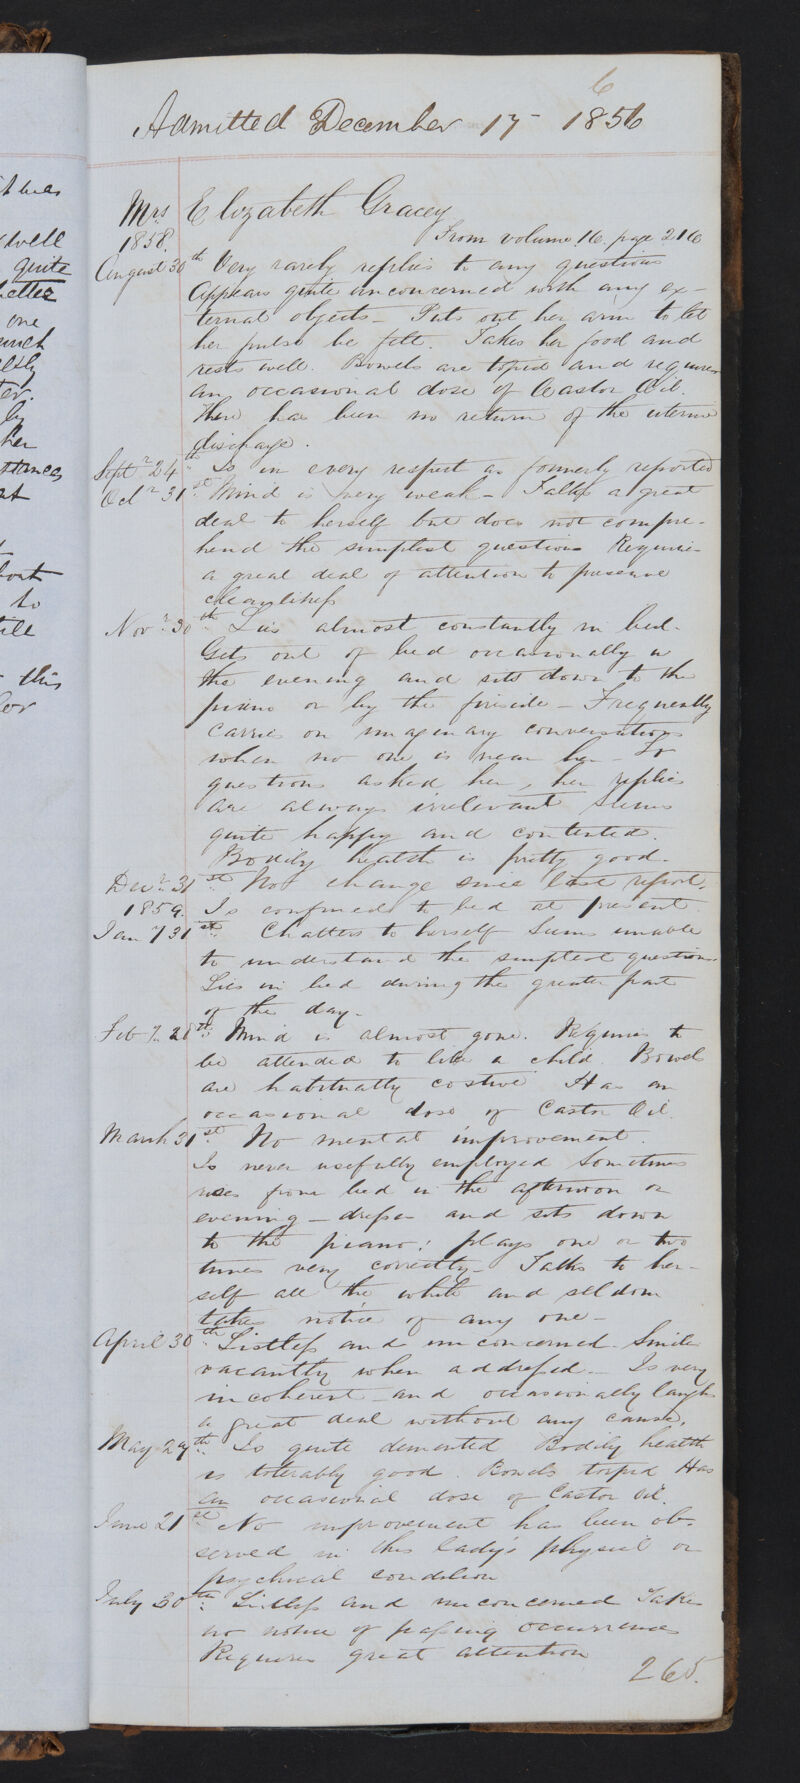 6
Admitted December 17 - 1856
Mrs Elizabeth Gracey
1858. From volume 16. page 216
August 30th Very rarely replies to any questions
Appears quite unconcerned with any ex-
ternal objects - Puts out her arm to let
her pulse be felt. Takes her food and
rests well. Bowels are torpid and requires
an occasional dose of Castor Oil.
There has been no return of the uterine
discharge.
Septr 24th Is in every respect as formerly reported
Octr 31st Mind is very weak - Talks a great
deal to herself but does not compre-
hend the simplest questions Requires
a great deal of attention to preserve
cleanliness
Novr 30th Lies almost constantly in bed.
Gets out of bed occasionally in
the evening and sits down to the
piano or by the fireside - Frequently
carries on imaginary conversations
when no one is near her - To
questions asked her, her replies
are always irrelevant Seems
quite happy and contented.
Bodily health is pretty good.
Decr 31st No change since last report.
1859. Is confined to bed at present
Jany 31st Chatters to herself Seems unable
to understand the simplest questions
Lies in bed during the greater part
of the day -
Feby 28th Mind is almost gone. Requires to
be attended to like a child. Bowels
are habitually costive Has an
occasional dose of Castor Oil.
March 31st No mental improvement.
Is never usefully employed Sometimes
rises from bed in the afternoon or
evening - dresses and sits down
to the piano; plays one or two
tunes very correctly - Talks to her-
self all the while and seldom
takes notice of any one -
April 30th Listless and unconcerned. Smiles
vacantly when addressed - Is very
incoherent and occasionally laughs
a great deal without any cause.
May 29th Is quite demented Bodily health
is tolerably good. Bowels torpid Has
an occasional dose of Castor Oil.
June 21st No improvement has been ob-
served in this lady's physical or
psychical condition
July 30th Listless and unconcerned Takes
no notice of passing occurrences
Requires great attention
265.